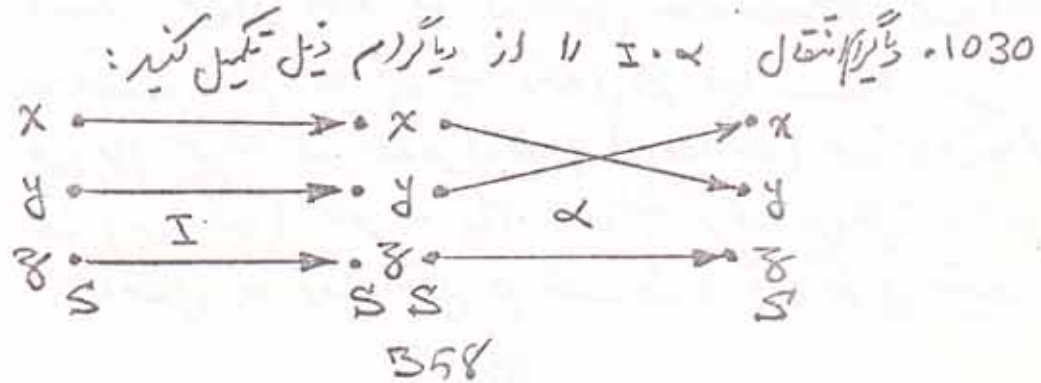 1030. دیاگرام انتقال I·α را از دیاگرام ذیل تکمیل کنید:
x x x
y y y
I α
z z z
S S S S
358